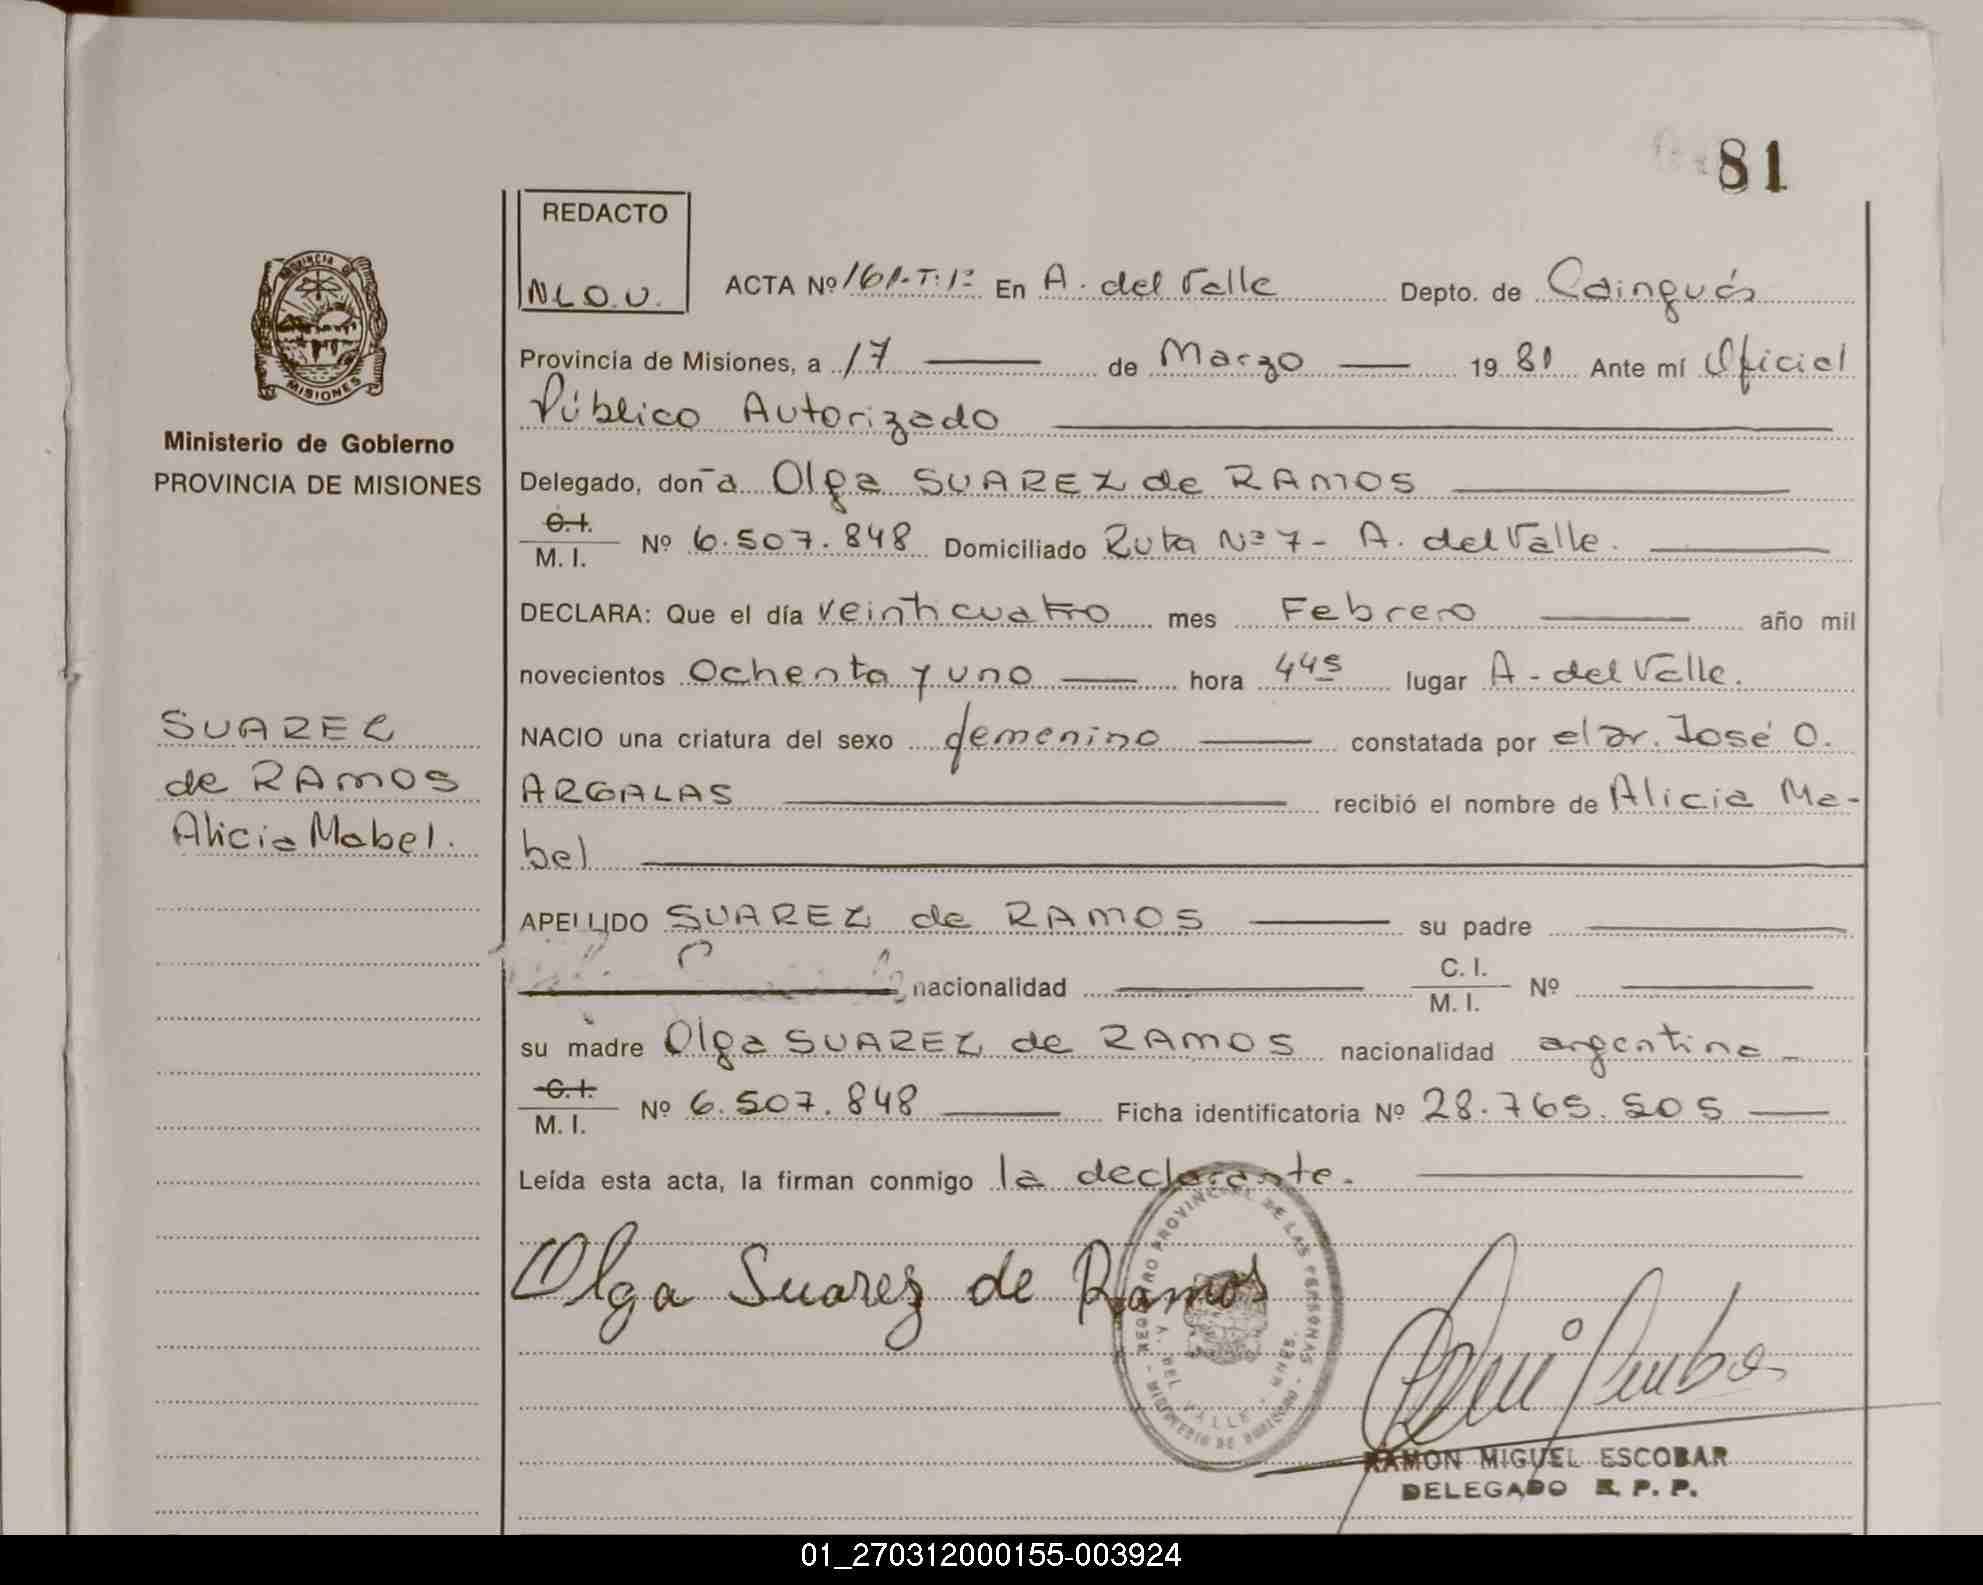 81
REDACTO
N L O. U.
PROVINCIA DE
MISIONES
Ministerio de Gobierno
PROVINCIA DE MISIONES
SUAREZ
de RAMOS
Alicia Mabel.
ACTA Nº 161-T:1º En A. del Valle Depto. de Cainguás
Provincia de Misiones, a 17 de Marzo 19 81 Ante mí Oficial
Público Autorizado
Delegado, don~a Olga SUAREZ de RAMOS
C.I.
M. I. Nº 6.507.848 Domiciliado Ruta Nº 7 - A. del Valle.
DECLARA: Que el día veinticuatro mes Febrero año mil
novecientos Ochenta y uno hora 4 45 lugar A - del Valle.
NACIO una criatura del sexo femenino constatada por el Dr. José O.
ARGALAS recibió el nombre de Alicia Ma-
bel
APELLIDO SUAREZ de RAMOS su padre
nacionalidad C. I.
M. I. Nº
su madre Olga SUAREZ de RAMOS nacionalidad argentina -
C.I.
M. I. Nº 6.507.848 Ficha identificatoria Nº 28.765.505
Leída esta acta, la firman conmigo la declarante.
Olga Suarez de Ramos
REGISTRO PROVINCIAL DE LAS PERSONAS
DEL VALLE - MNES.
MINISTERIO DE GOBIERNO
RAMON MIGUEL ESCOBAR
DELEGADO R. P. P.
01_270312000155-003924